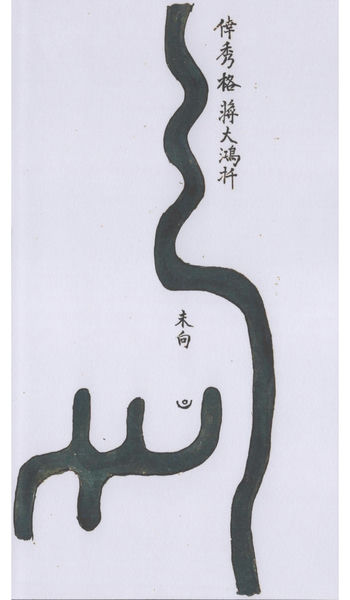 倖秀格蔣大鴻扦
未向